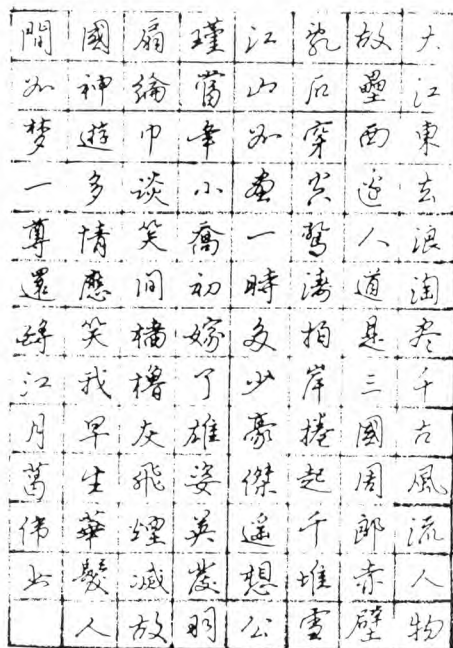 大江東去浪淘尽千古風流人物
故壘西邊人道是三國周郎赤壁
乱石穿空驚濤拍岸捲起千堆雪
江山如畫一時多少豪傑遥想公
瑾當年小喬初嫁了雄姿英發羽
扇綸巾谈笑间檣櫓灰飛煙滅故
國神遊多情應笑我早生華髮人
間如梦一尊還酹江月葛伟书